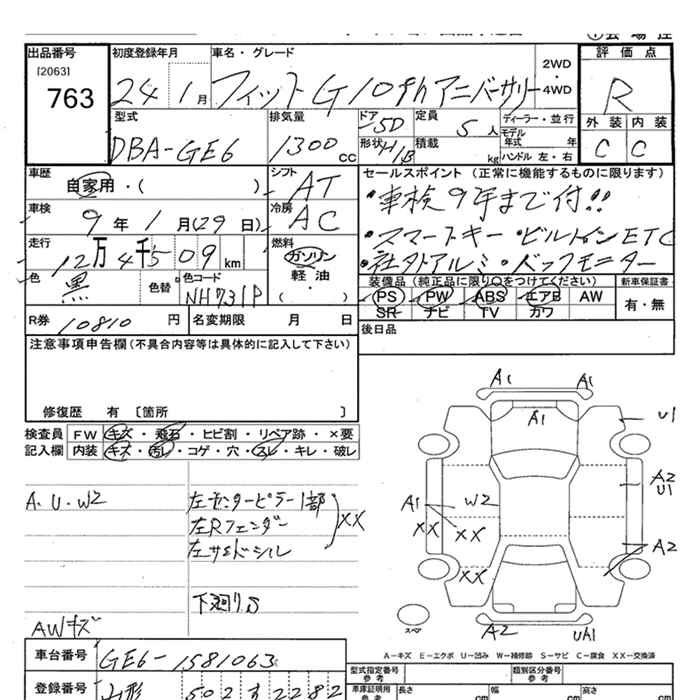 出品番号
[2063]
763
初度登録年月
24 1月
車名・グレード
フィットG10thアニバーサリー
2WD
・
4WD
評価点
R
外装 内装
C C
型式
DBA-GE6
排気量
1300 cc
ドア
5D
形状 H/B
定員
5人
積載 kg
ディーラー・並行
モデル年式 年
ハンドル 左・右
車歴
自家用・( )
シフト
AT
車検
9年1月(29日)
冷房
AC
走行
12万4千509km
燃料
ガソリン
軽油
・( )
色
黒
色替
色コード
NH731P
セールスポイント(正常に機能するものに限ります)
・車検9年まで付!!
・スマートキー・ビルトインETC
・社外アルミ・バックモニター
装備品(純正品に限り○をつけてください)
PS PW ABS エアB AW
SR ナビ TV カワ
新車保証書
有・無
R券 10810円
名変期限 月 日
後日品
注意事項申告欄(不具合内容等は具体的に記入して下さい)
修復歴 有 〔箇所 〕
検査員記入欄
FW キズ・飛石・ヒビ割・リペア跡・×要
内装 キズ・汚れ・コゲ・穴・スレ・キレ・破レ
A.U.W2
左センターピラー1部
左Rフェンダー
左サイドシル
XX
下廻りS
AWキズ
A1 A1
A1
U1
A2
U1
A1
W2
XX XX
XX
A2
スペア
A2 UH1
A-キズ E-エクボ U-凹み W-補修跡 S-サビ C-腐食 XX-交換済
車台番号
GE6-1581063
登録番号
山形 502 す 2282
型式指定番号
参考
類別区分番号
参考
車庫証明用
参考
長さ cm
幅 cm
高さ cm